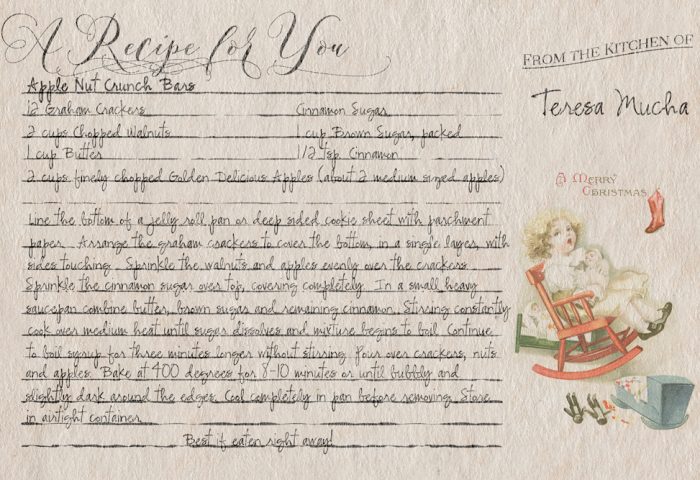 A Recipe for You
FROM THE KITCHEN OF
Teresa Mucha
Apple Nut Crunch Bars
12 Graham Crackers Cinnamon Sugar
2 cups Chopped Walnuts 1 cup Brown Sugar, packed
1 cup Butter 1/2 tsp. Cinnamon
2 cups finely chopped Golden Delicious Apples (about 2 medium sized apples)
Line the bottom of a jelly roll pan or deep sided cookie sheet with parchment
paper. Arrange the graham crackers to cover the bottom, in a single layer, with
sides touching. Sprinkle the walnuts and apples evenly over the crackers.
Sprinkle the cinnamon sugar over top, covering completely. In a small heavy
saucepan combine butter, brown sugar and remaining cinnamon. Stirring constantly
cook over medium heat until sugar dissolves and mixture begins to boil. Continue
to boil syrup for three minutes longer without stirring. Pour over crackers, nuts
and apples. Bake at 400 degrees for 8-10 minutes or until bubbly and
slightly dark around the edges. Cool completely in pan before removing. Store
in airtight container.
Best if eaten right away!
A MERRY
CHRISTMAS